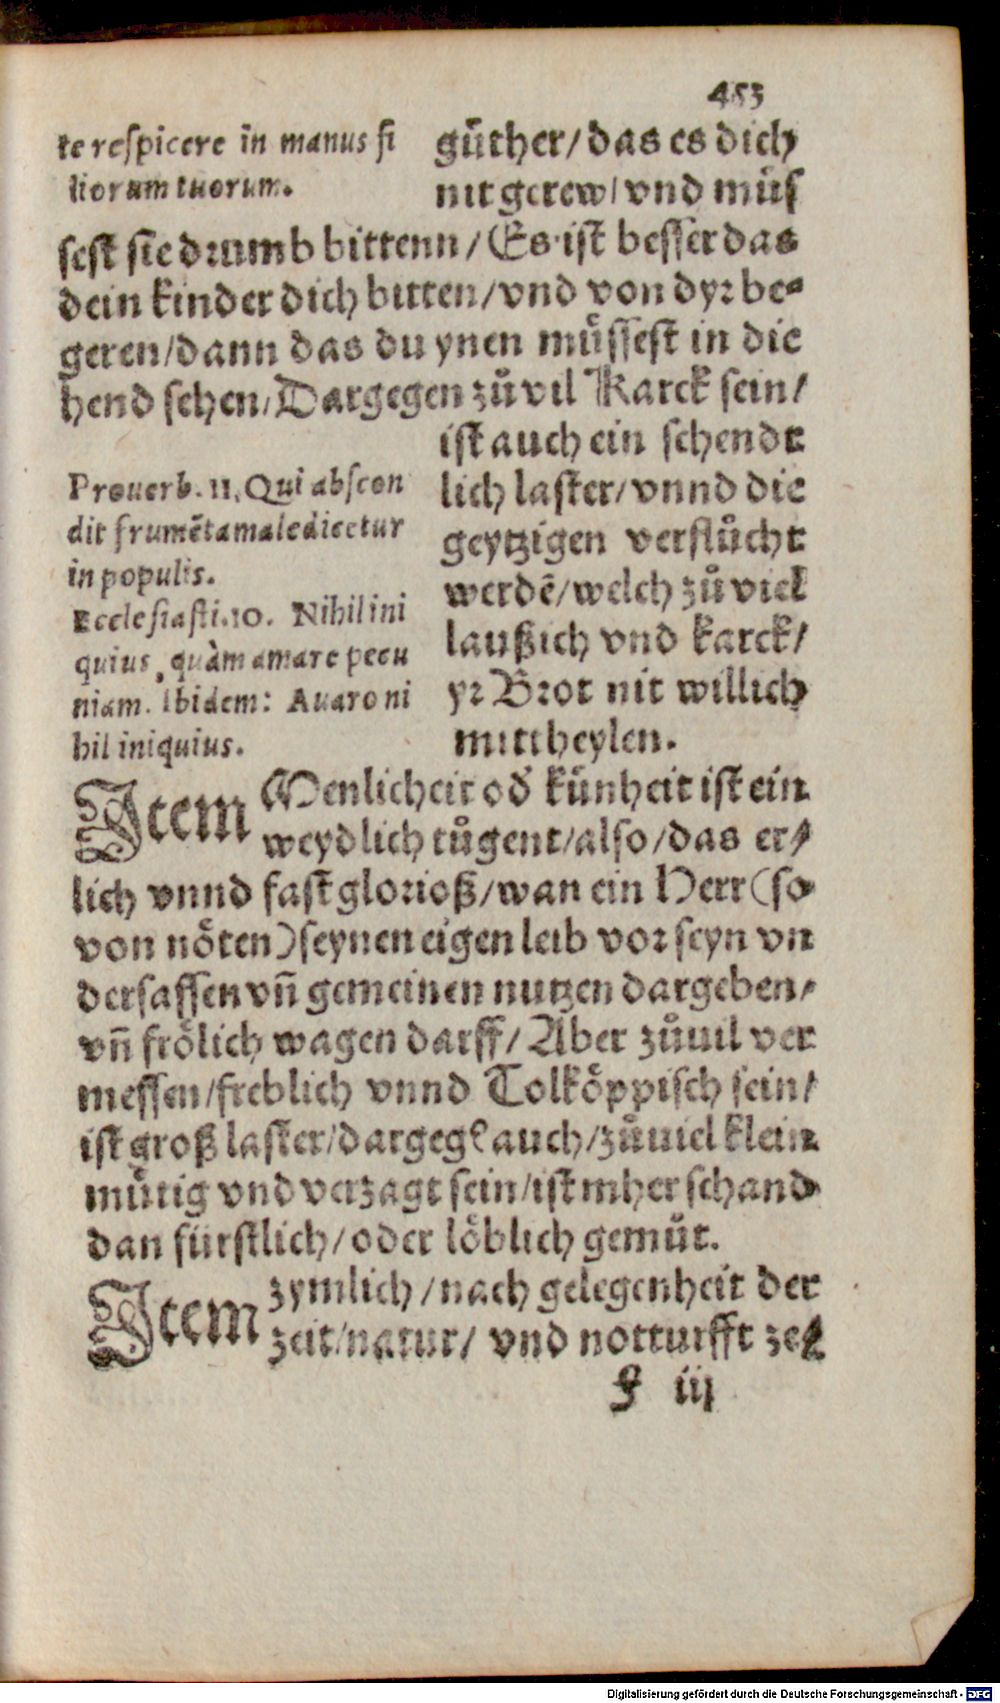 453
te respicere in manus fi
liorum tuorum.
guͤther/ das es dich
nit gerew/ vnd muͤs
sest sie drumb bittenn/ Es ist besser das
dein kinder dich bitten/ vnd von dyr be-
geren/ dann das du ynen muͤssest in die
hend sehen/ Dargegen zuͦ vil Karck sein/
ist auch ein schendt
lich laster/ vnnd die
geytzigen verfluͦcht
werdē/ welch zuͦ viel
laußich vnd karck/
yr Brot nit willich
mittheylen.
Prouerb. 11. Qui abscon
dit frumēta maledicetur
in populis.
Ecclesiasti. 10. Nihil ini
quius, quàm amare pecu
niam. Ibidem: Auaro ni
hil iniquius.
Item Menlicheit od' kuͤnheit ist ein
weydlich tuͦgent/ also/ das er/
lich vnnd fast glorioß/ wan ein Herr (so
von noͤten) seynen eigen leib vor seyn vn
dersassen vn̄ gemeinen nutzen dargeben/
vn̄ froͤlich wagen darff/ Aber zuͦuil ver
messen/ freblich vnnd Tolkoͤppisch sein/
ist groß laster/ dargegē auch/ zuͦuiel klein
muͤtig vnd verzagt sein/ ist mher schand
dan fürstlich/ oder loͤblich gemuͤt.
Item zymlich/ nach gelegenheit der
zeit/ natur/ vnd notturfft ze/
f iij
Digitalisierung gefördert durch die Deutsche Forschungsgemeinschaft - DFG